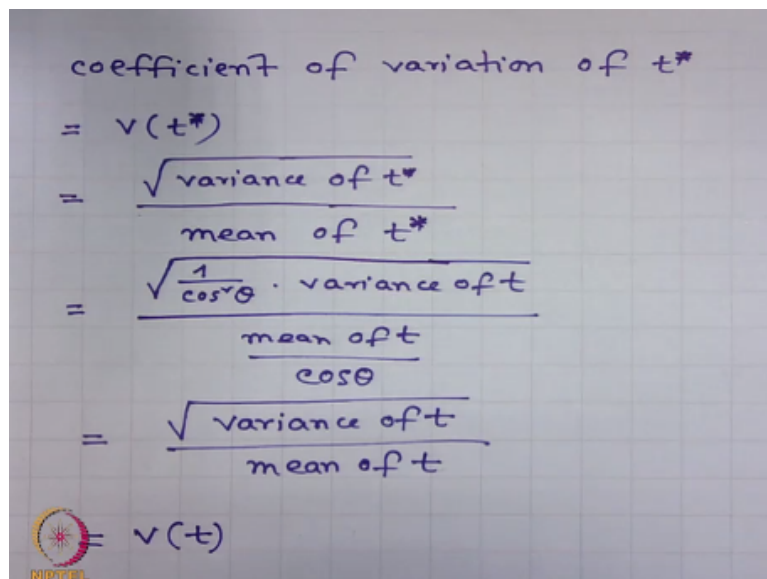 coefficient of variation of t*
= v(t*)
= √variance of t*
mean of t*
= √1/cos²θ · variance of t
mean of t
cosθ
= √variance of t
mean of t
= v(t)
NPTEL